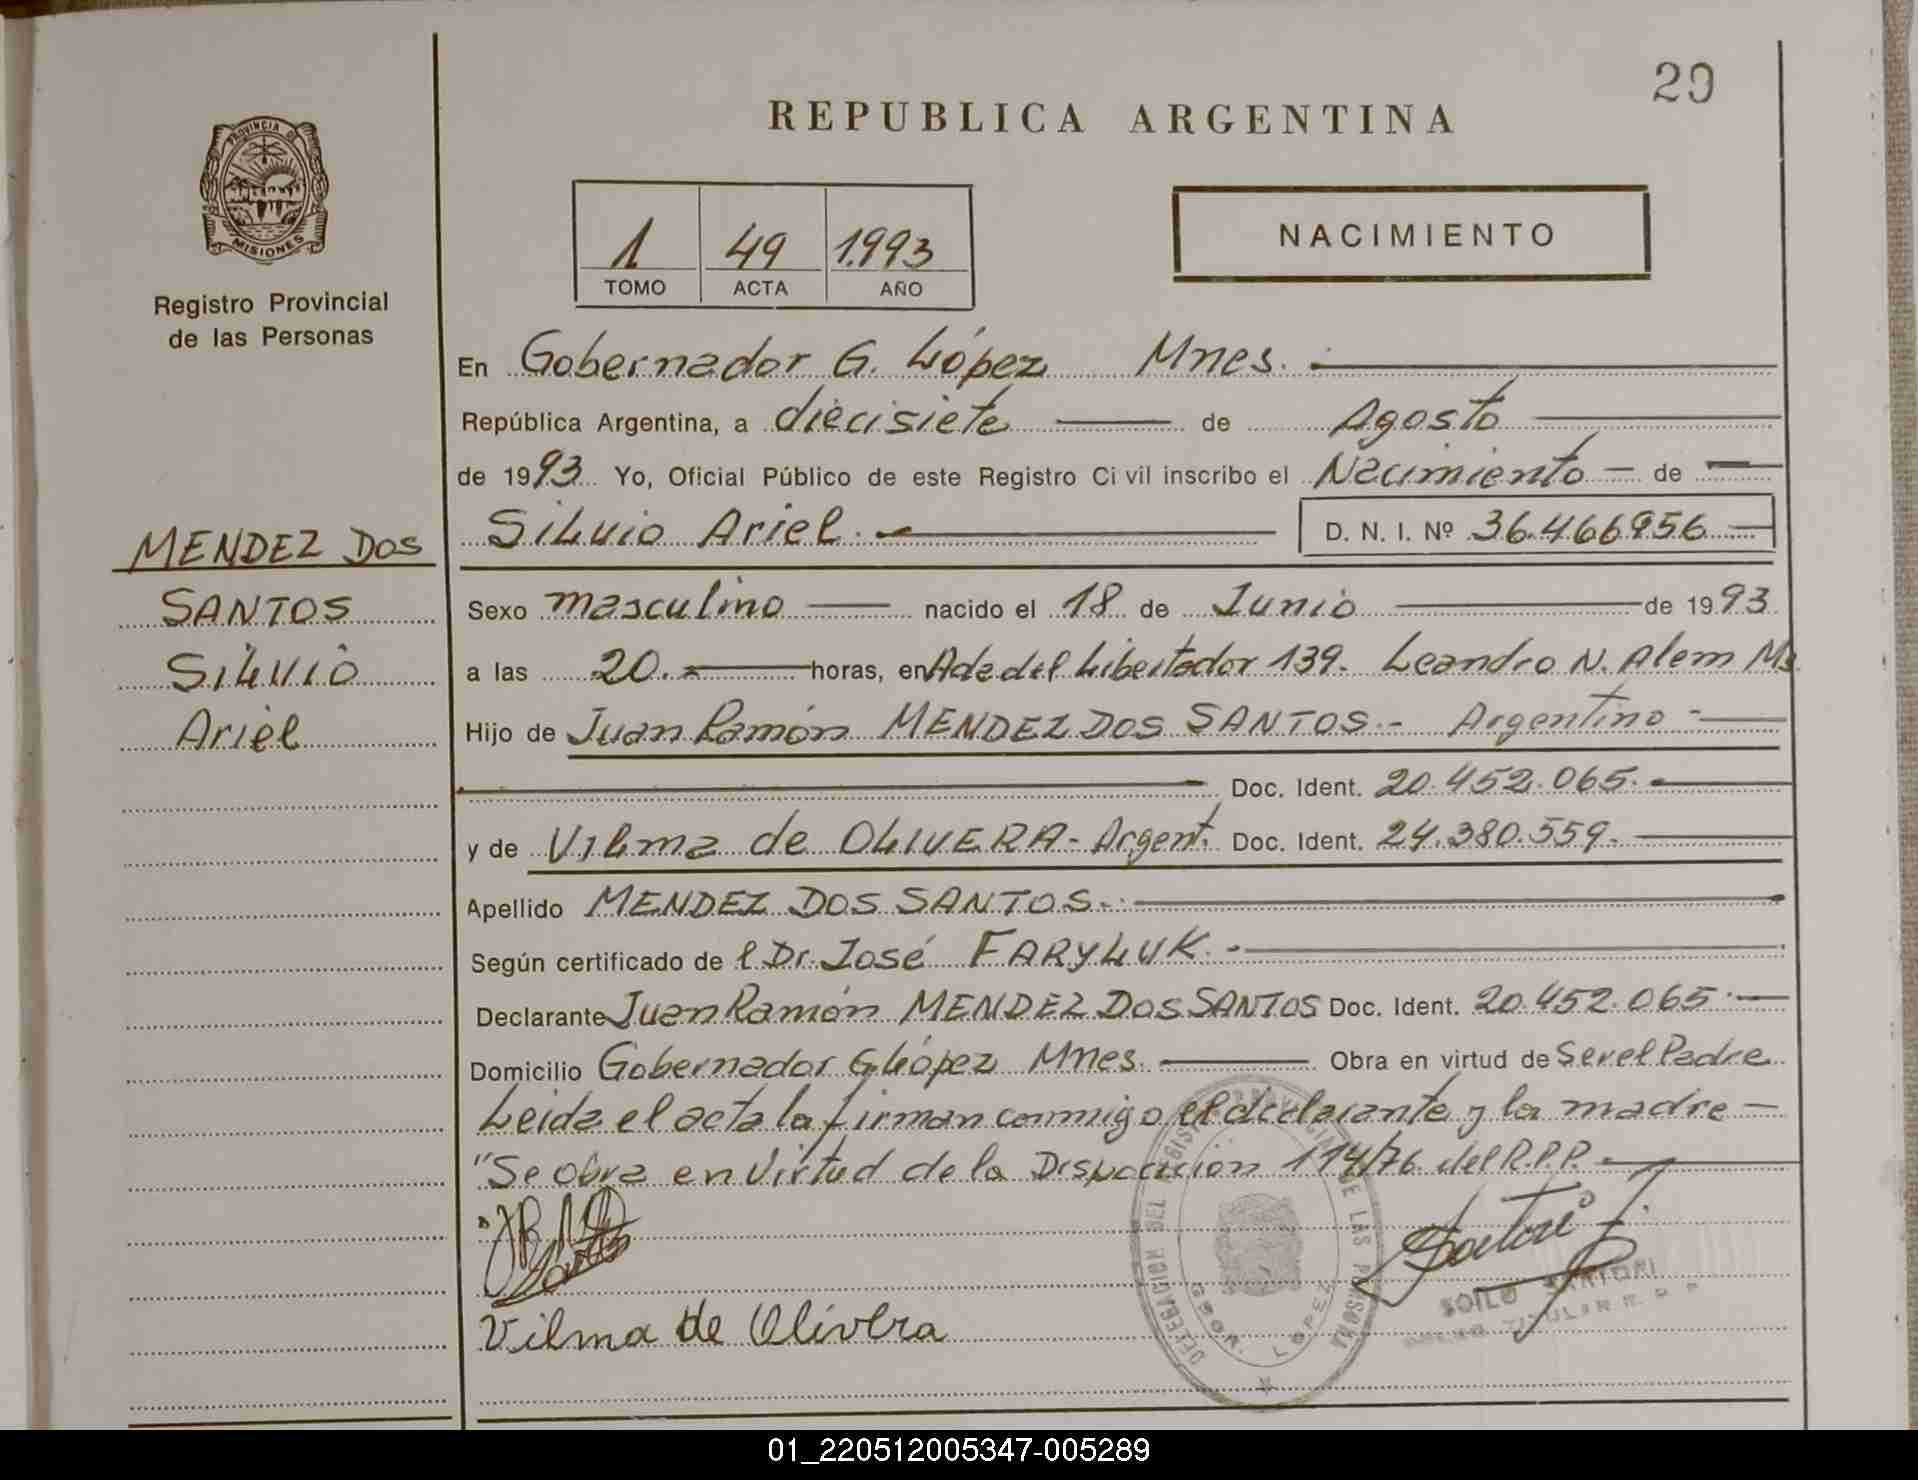 29
REPUBLICA ARGENTINA
PROVINCIA DE
MISIONES
Registro Provincial
de las Personas
1 49 1.993
TOMO ACTA AÑO
NACIMIENTO
En Gobernador G. López Mnes.
República Argentina, a diecisiete de Agosto
de 1993 Yo, Oficial Público de este Registro Civil inscribo el Nacimiento de
Silvio Ariel. D. N. I. Nº 36.466956
MENDEZ DOS
SANTOS
Silvio
Ariel
Sexo masculino nacido el 18 de Junio de 1993
a las 20. horas, en Ada del Libertador 139. Leandro N. Alem Ms.
Hijo de Juan Ramón MENDEZ DOS SANTOS.- Argentino -
Doc. Ident. 20.452.065.
y de Vilma de OLIVERA - Argent. Doc. Ident. 24.380.559.
Apellido MENDEZ DOS SANTOS.
Según certificado de l Dr. José FARYLUK.
Declarante Juan Ramón MENDEZ DOS SANTOS Doc. Ident. 20.452.065.
Domicilio Gobernador G López Mnes. Obra en virtud de Ser el Padre
Leida el acta la firman conmigo el declarante y la madre
"Se obra en virtud de la Disposición 114/76 del R.P.P.
DELEGACION DEL REGISTRO PROVINCIAL DE LAS PERSONAS
GBOR. LOPEZ
Sartori
SOILO SARTORI
Vilma de Olivera
01_220512005347-005289